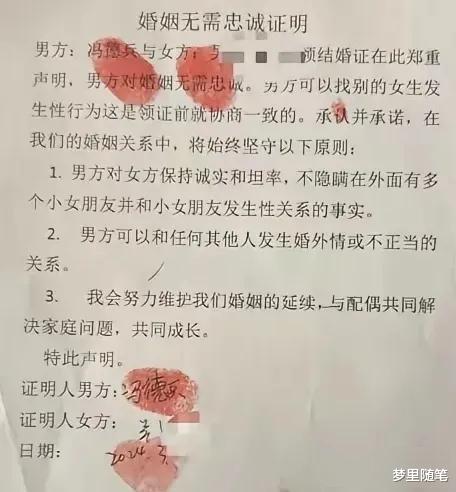 婚姻无需忠诚证明
男方：冯德兵与女方： 领结婚证在此郑重
声明，男方对婚姻无需忠诚。男方可以找别的女生发
生性行为这是领证前就协商一致的。承认并承诺，在
我们的婚姻关系中，将始终坚守以下原则：
1. 男方对女方保持诚实和坦率，不隐瞒在外面有多
个小女朋友并和小女朋友发生性关系的事实。
2. 男方可以和任何其他人发生婚外情或不正当的
关系。
3. 我会努力维护我们婚姻的延续，与配偶共同解
决家庭问题，共同成长。
特此声明。
证明人男方：冯德兵
证明人女方：
日期：2024.3.
梦里随笔